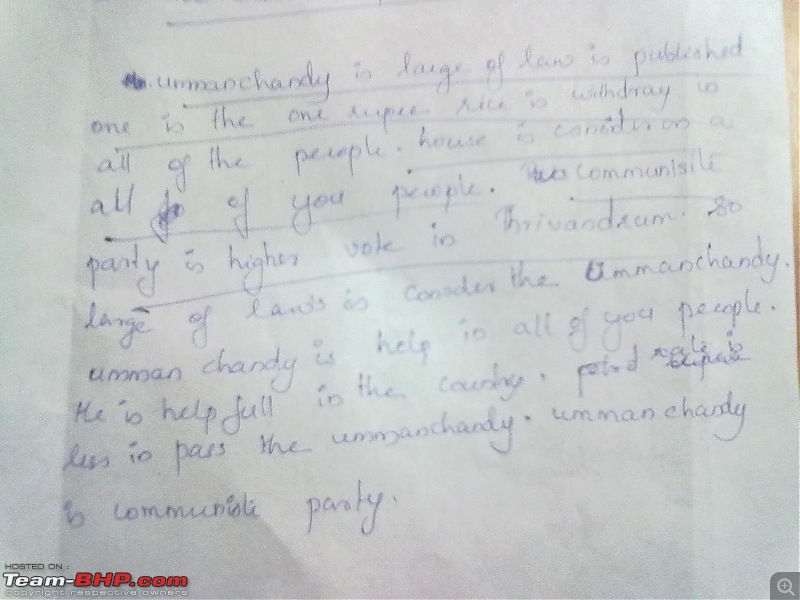 ummanchandy is large of law is published
one is the one rupee rice is withdray in
all of the people. house is consider on a
all of you people. communisite
party is higher vote in Thrivandrum. so
large of law's is consder the Ummanchandy.
umman chandy is help in all of you people.
He is help full in the country. petrol
less in pass the ummanchandy. umman chandy
is communisti party.
HOSTED ON :
Team-BHP.com
copyright respective owners